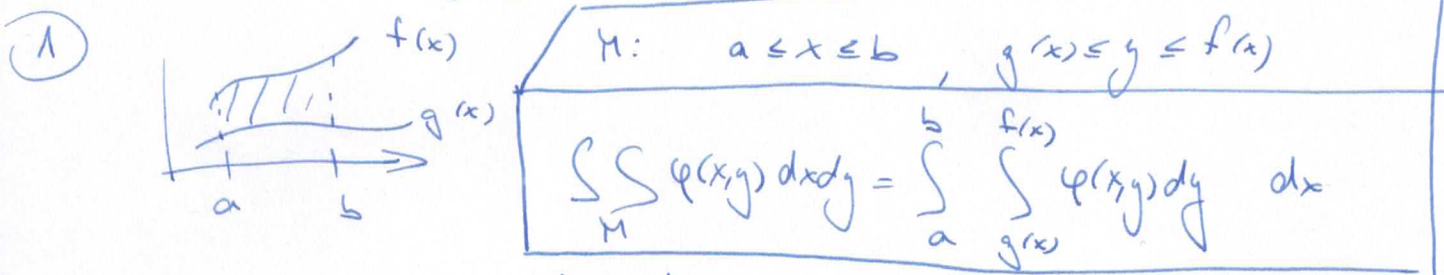 1
f(x)
g(x)
a b
M: a ≤ x ≤ b , g(x) ≤ y ≤ f(x)
∫∫_M φ(x,y) dxdy = ∫_a^b ∫_{g(x)}^{f(x)} φ(x,y) dy dx